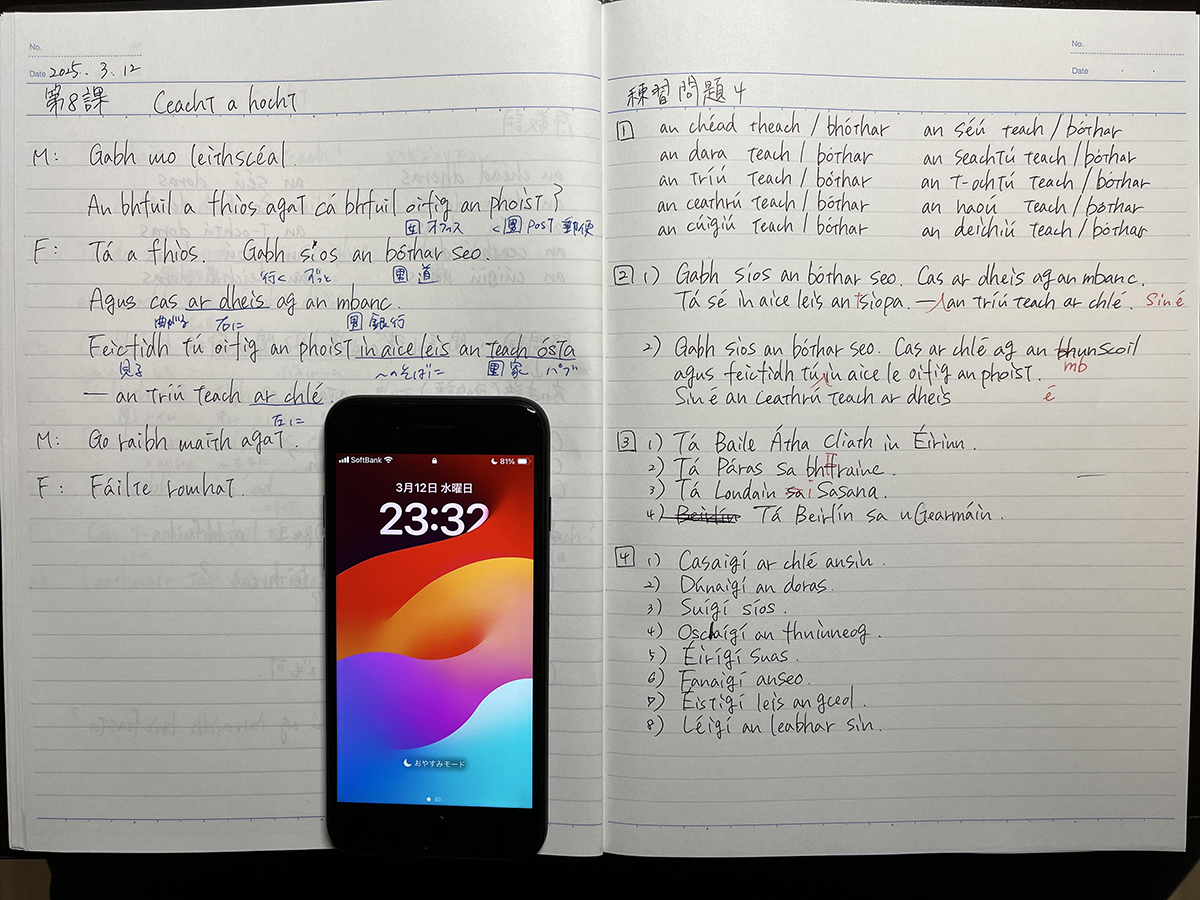 No.
Date 2025. 3. 12
第8課 Ceacht a hocht
M: Gabh mo leithscéal.
An bhfuil a fhios agat cá bhfuil oifig an phoist?
囡 オフィス <男 post 郵便
F: Tá a fhios. Gabh síos an bóthar seo.
行く ずっと 男 道
Agus cas ar dheis ag an mbanc.
曲がる 右に 男 銀行
Feicfidh tú oifig an phoist in aice leis an teach ósta
見る 〜のそばに 男 家 パブ
— an tríú teach ar chlé
左に
M: Go raibh maith agat.
F: Fáilte romhat.
SoftBank 81%
3月12日 水曜日
23:32
おやすみモード
No.
Date
練習問題4
1 an chéad theach / bhóthar an séú teach / bóthar
an dara teach / bóthar an seachtú teach / bóthar
an tríú teach / bóthar an t-ochtú teach / bóthar
an ceathrú teach / bóthar an naoú teach / bóthar
an cúigiú teach / bóthar an deichiú teach / bóthar
2 1) Gabh síos an bóthar seo. Cas ar dheis ag an mbanc.
Tá sé in aice leis an tsiopa. — an tríú teach ar chlé. Sin é
2) Gabh síos an bóthar seo. Cas ar chlé ag an bhunscoil
mb
agus feicfidh tú in aice le oifig an phoist.
é
Sin é an ceathrú teach ar dheis
3 1) Tá Baile Átha Cliath in Éirinn.
2) Tá Páras sa bhFrainc.
3) Tá Londain sa i Sasana.
4) Beirlín Tá Beirlín sa nGearmáin.
4 1) Casaigí ar chlé ansin.
2) Dúnaigí an doras.
3) Suígí síos.
4) Osclaígí an fhuinneog.
5) Éirígí suas.
6) Fanaigí anseo.
7) Éistigí leis an gceol.
8) Léigí an leabhar sin.